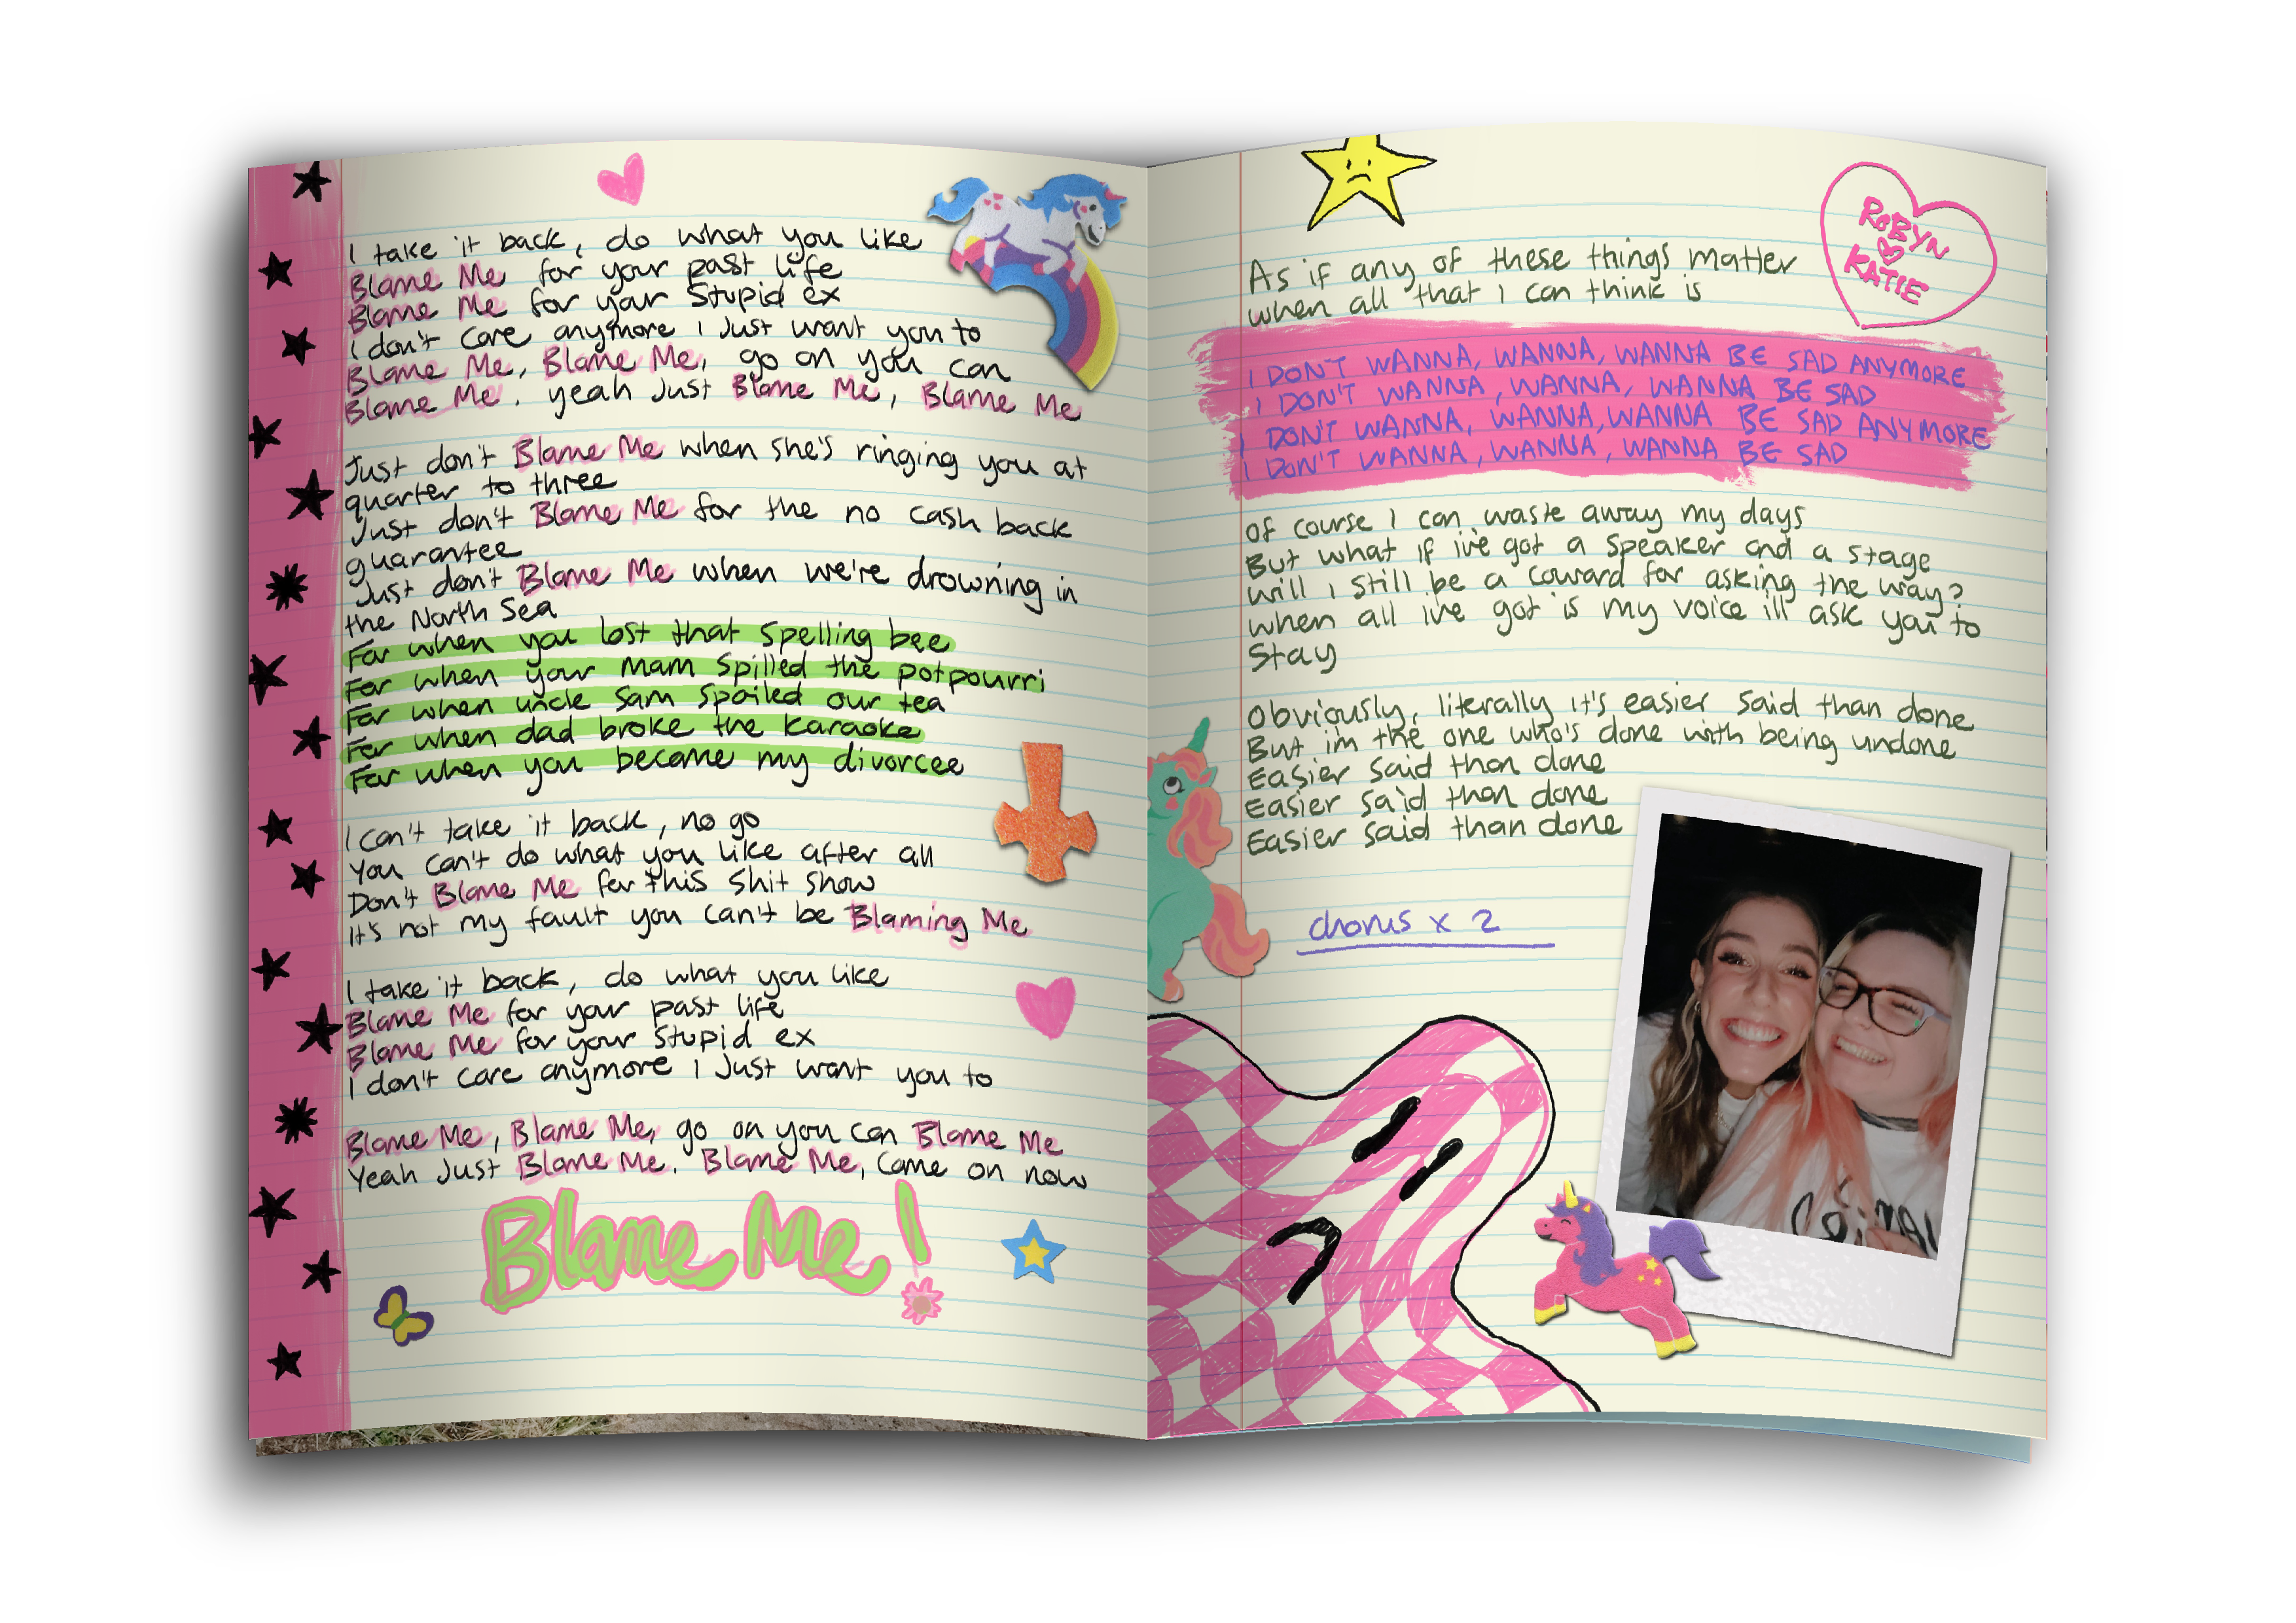 I take it back, do what you like
Blame Me for your past life
Blame Me for your stupid ex
I don't care anymore I Just want you to
Blame Me, Blame Me, go on you can
Blame Me, yeah Just Blame Me, Blame Me
Just don't Blame Me when she's ringing you at
quarter to three
Just don't Blame Me for the no cash back
guarantee
Just don't Blame Me when we're drowning in
the North Sea
For when you lost that spelling bee
For when your Mam spilled the potpourri
For when uncle Sam spoiled our tea
For when dad broke the karaoke
For when you became my divorcee
I can't take it back, no go
You can't do what you like after all
Don't Blame Me for this shit show
It's not my fault you can't be Blaming Me
I take it back, do what you like
Blame Me for your past life
Blame Me for your stupid ex
I don't care anymore I Just want you to
Blame Me, Blame Me, go on you can Blame Me
Yeah Just Blame Me. Blame Me, Come on now
Blame Me!
ROBYN
KATIE
As if any of these things matter
when all that I can think is
I DON'T WANNA, WANNA, WANNA BE SAD ANYMORE
I DON'T WANNA, WANNA, WANNA BE SAD
I DON'T WANNA, WANNA, WANNA BE SAD ANYMORE
I DON'T WANNA, WANNA, WANNA BE SAD
Of course I can waste away my days
But what if ive got a speaker and a stage
will I still be a coward for asking the way?
when all ive got is my voice ill ask you to
Stay
Obviously, literally it's easier said than done
But im the one who's done with being undone
Easier said than done
Easier said than done
Easier said than done
chorus x 2